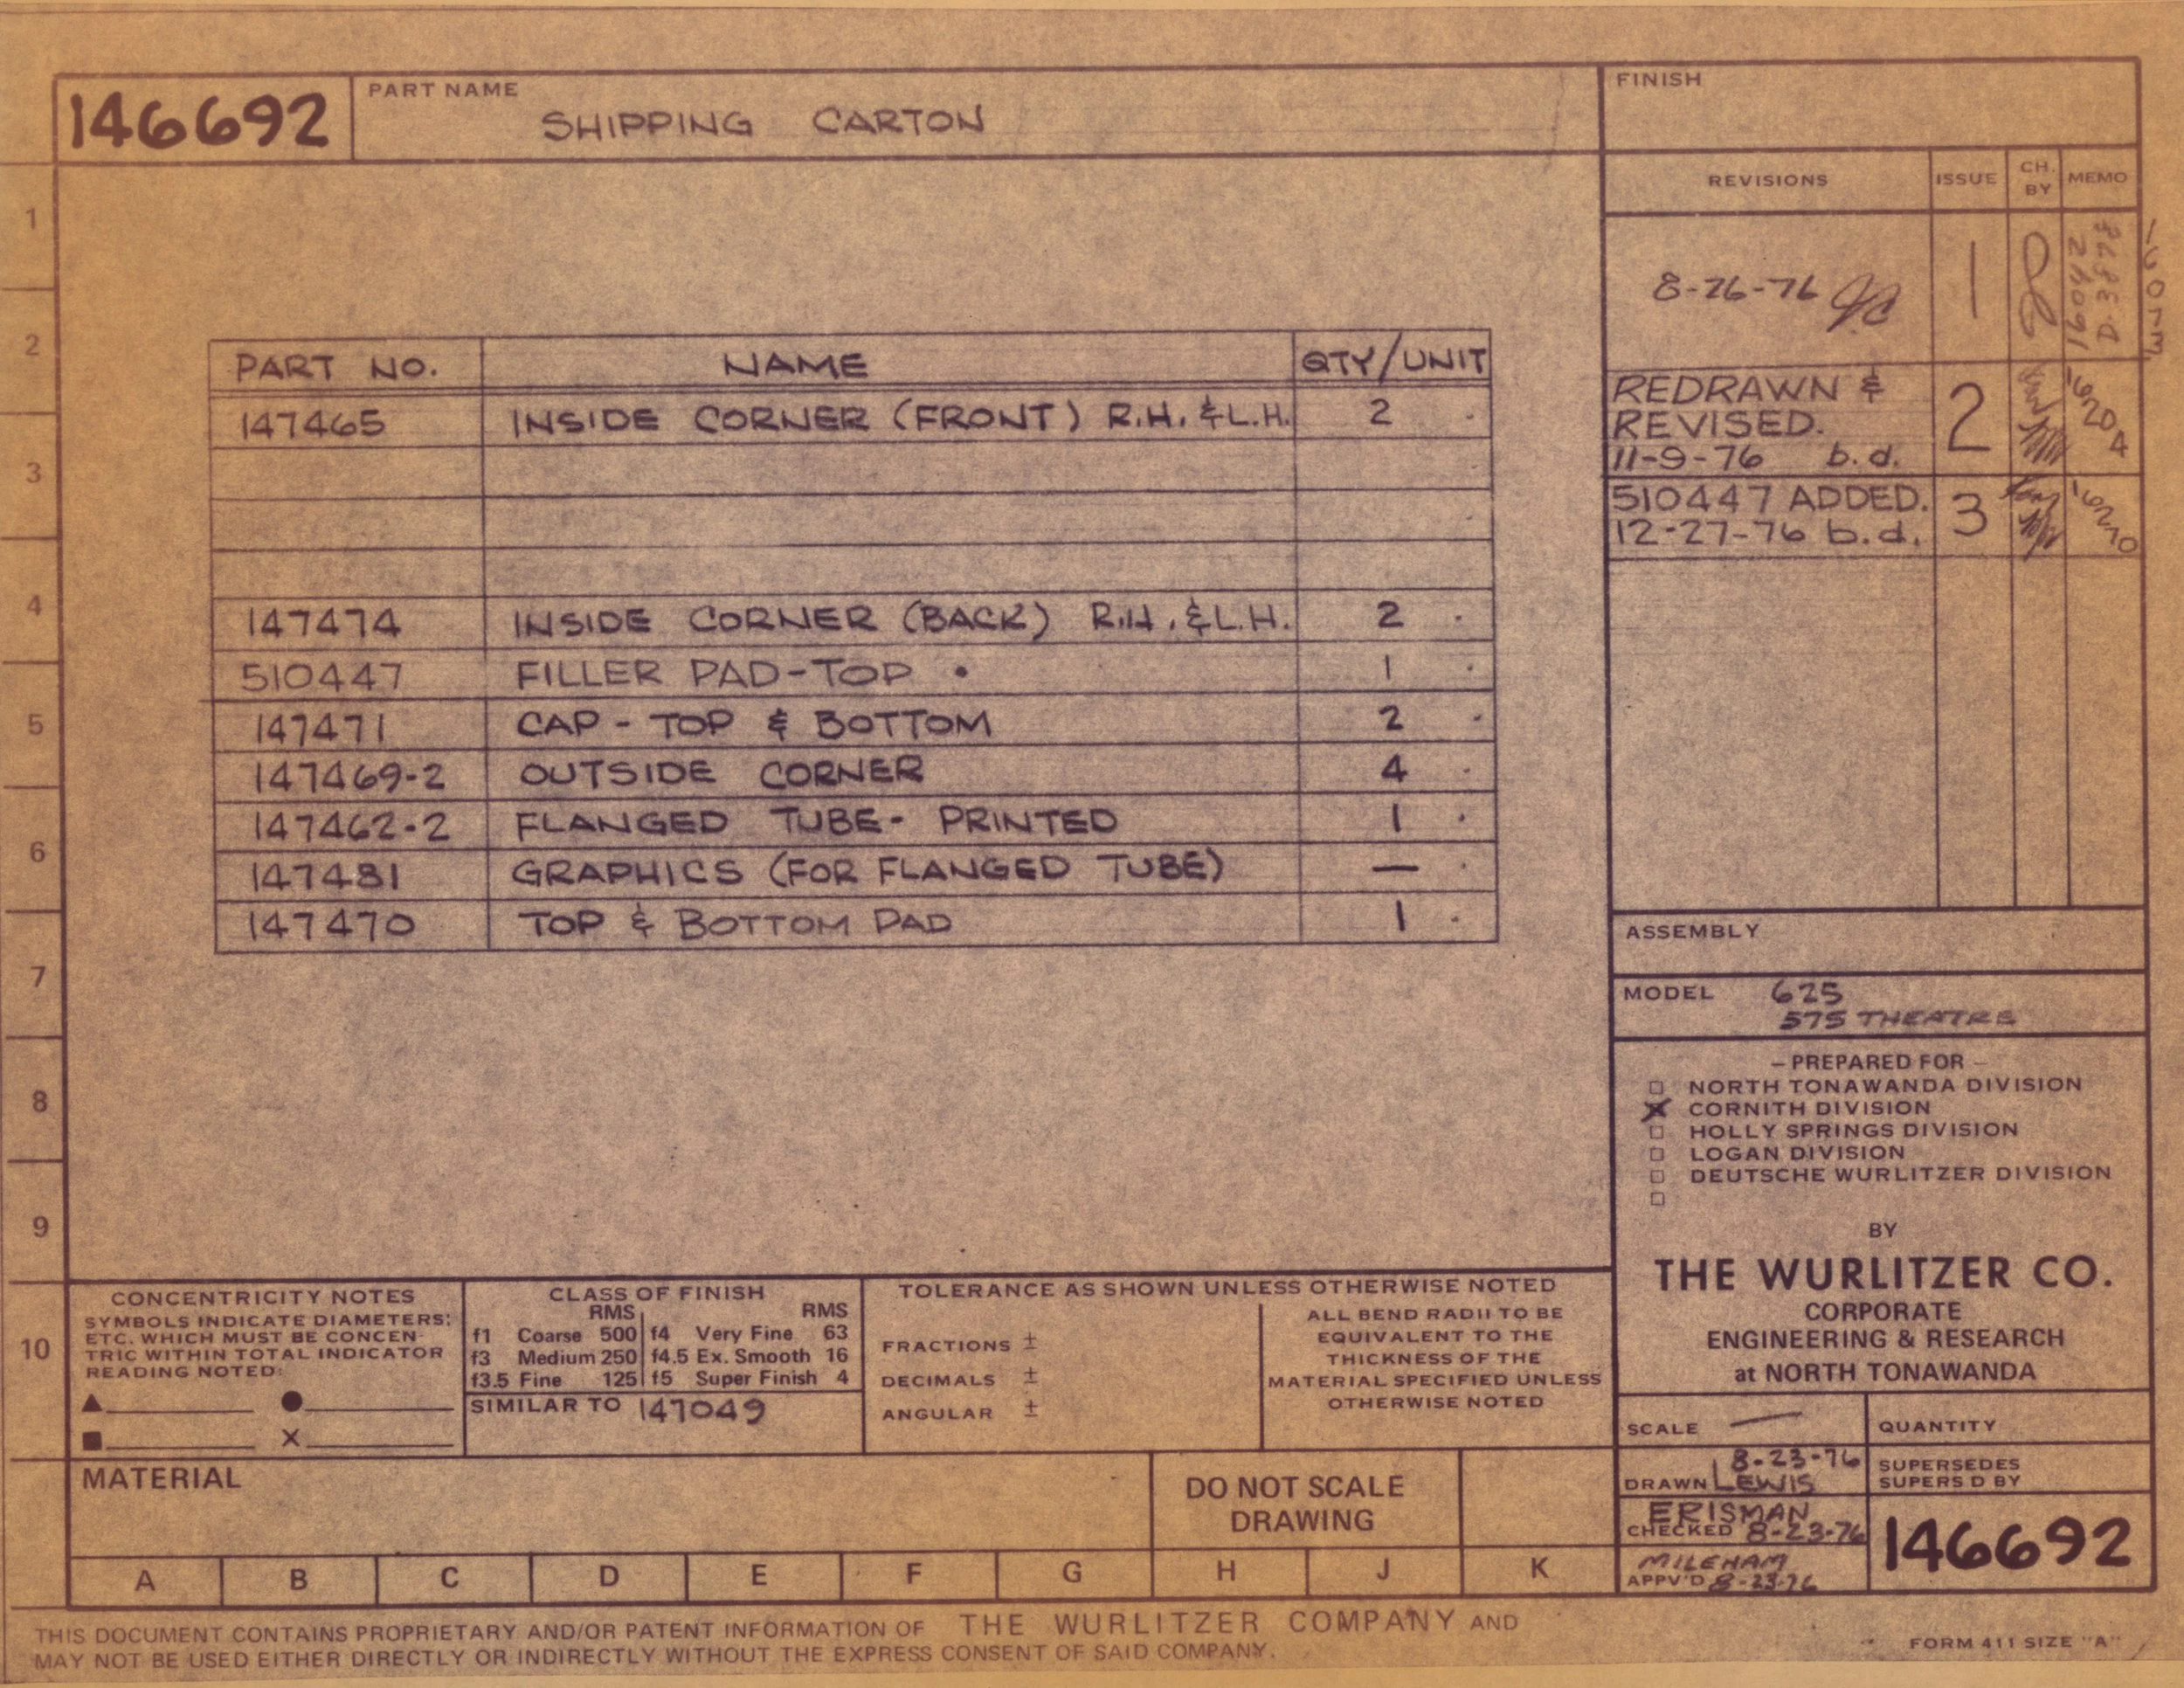 146692
PART NAME
SHIPPING CARTON
FINISH
REVISIONS ISSUE CH. BY MEMO
8-26-76 1 16042 D-3878
REDRAWN &
REVISED.
11-9-76 b.d. 2 16204
510447 ADDED.
12-27-76 b.d. 3 16270
PART NO. NAME QTY/UNIT
147465 INSIDE CORNER (FRONT) R.H. & L.H. 2
147474 INSIDE CORNER (BACK) R.H. & L.H. 2
510447 FILLER PAD-TOP 1
147471 CAP - TOP & BOTTOM 2
147469-2 OUTSIDE CORNER 4
147462-2 FLANGED TUBE- PRINTED 1
147481 GRAPHICS (FOR FLANGED TUBE) —
147470 TOP & BOTTOM PAD 1
1
2
3
4
5
6
7
8
9
10
ASSEMBLY
MODEL 625
575 THEATRE
– PREPARED FOR –
NORTH TONAWANDA DIVISION
X CORNITH DIVISION
HOLLY SPRINGS DIVISION
LOGAN DIVISION
DEUTSCHE WURLITZER DIVISION
BY
THE WURLITZER CO.
CORPORATE
ENGINEERING & RESEARCH
at NORTH TONAWANDA
CONCENTRICITY NOTES
SYMBOLS INDICATE DIAMETERS;
ETC. WHICH MUST BE CONCEN-
TRIC WITHIN TOTAL INDICATOR
READING NOTED:
▲ ●
■ X
CLASS OF FINISH
RMS RMS
f1 Coarse 500 f4 Very Fine 63
f3 Medium 250 f4.5 Ex. Smooth 16
f3.5 Fine 125 f5 Super Finish 4
SIMILAR TO 147049
TOLERANCE AS SHOWN UNLESS OTHERWISE NOTED
FRACTIONS ±
DECIMALS ±
ANGULAR ±
ALL BEND RADII TO BE
EQUIVALENT TO THE
THICKNESS OF THE
MATERIAL SPECIFIED UNLESS
OTHERWISE NOTED
SCALE —
QUANTITY
DRAWN 8-23-76
LEWIS
SUPERSEDES
SUPERS D BY
ERISMAN
CHECKED 8-23-76
MILEHAM
APPV'D 8-23-76
146692
MATERIAL
DO NOT SCALE
DRAWING
A B C D E F G H J K
THIS DOCUMENT CONTAINS PROPRIETARY AND/OR PATENT INFORMATION OF THE WURLITZER COMPANY AND
MAY NOT BE USED EITHER DIRECTLY OR INDIRECTLY WITHOUT THE EXPRESS CONSENT OF SAID COMPANY.
FORM 411 SIZE "A"